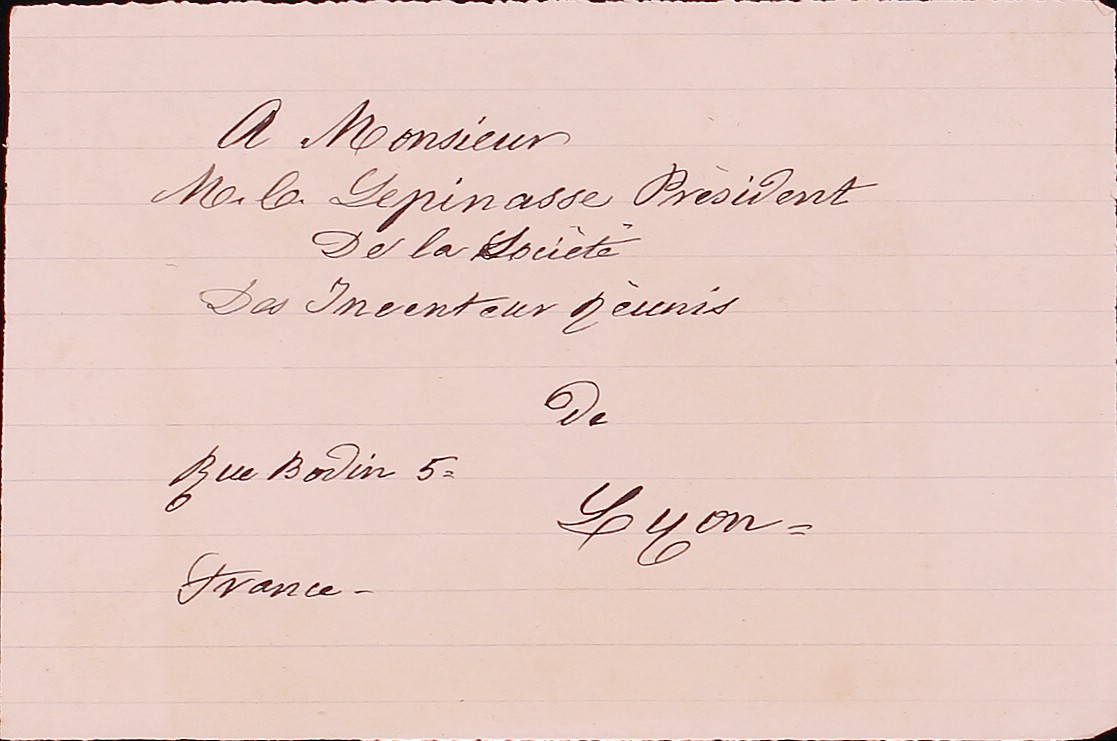 A Monsieur
M. C. Lepinasse Président
De la Société
Des Inventeur Réunis
De
Rue Bodin 5=
Lyon=
France-